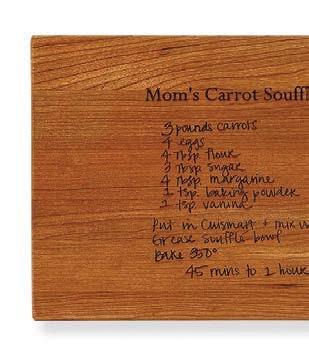 Mom's Carrot Souffl
3 pounds carrots
4 eggs
4 Tbsp flour
3 Tbsp sugar
4 Tbsp margarine
1 tsp. baking powder
2 tsp. vanilla
Put in Cuisinart + mix u
Grease souffle bowl
Bake 350°
45 mins to 1 hour